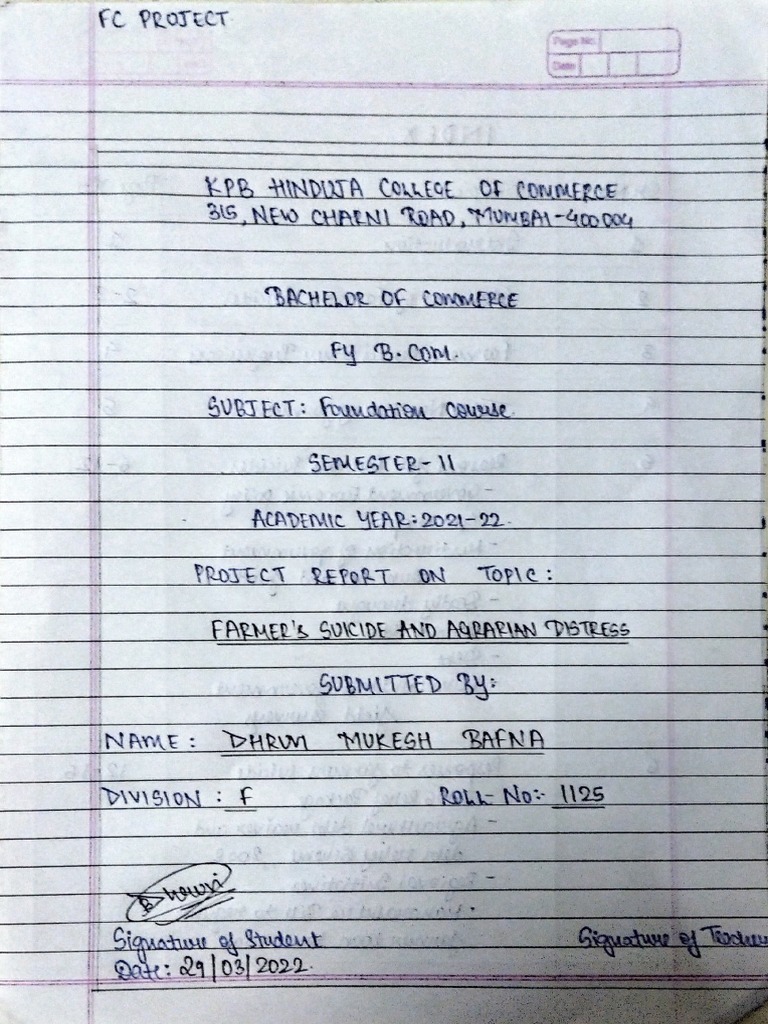 FC PROJECT
Page No.
Date
KPB HINDUJA COLLEGE OF COMMERCE
315, NEW CHARNI ROAD, MUMBAI-400004
BACHELOR OF COMMERCE
FY B.COM.
SUBJECT: Foundation Course
SEMESTER-II
ACADEMIC YEAR: 2021-22.
PROJECT REPORT ON TOPIC:
FARMER'S SUICIDE AND AGRARIAN DISTRESS
SUBMITTED BY:
NAME: DHRUVI MUKESH BAFNA
DIVISION: F ROLL NO:- 1125
Signature of Student Signature of Teacher
Date: 29/03/2022.